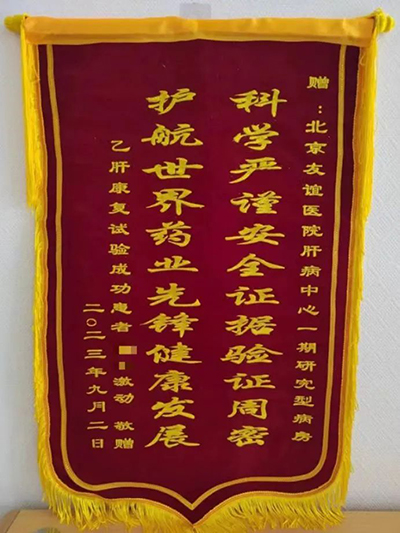 赠：北京友谊医院肝病中心一期研究型病房
科学严谨安全证据验证周密
护航世界药业先锋健康发展
乙肝康复试验成功患者 激动 敬赠
二〇二三年九月二日